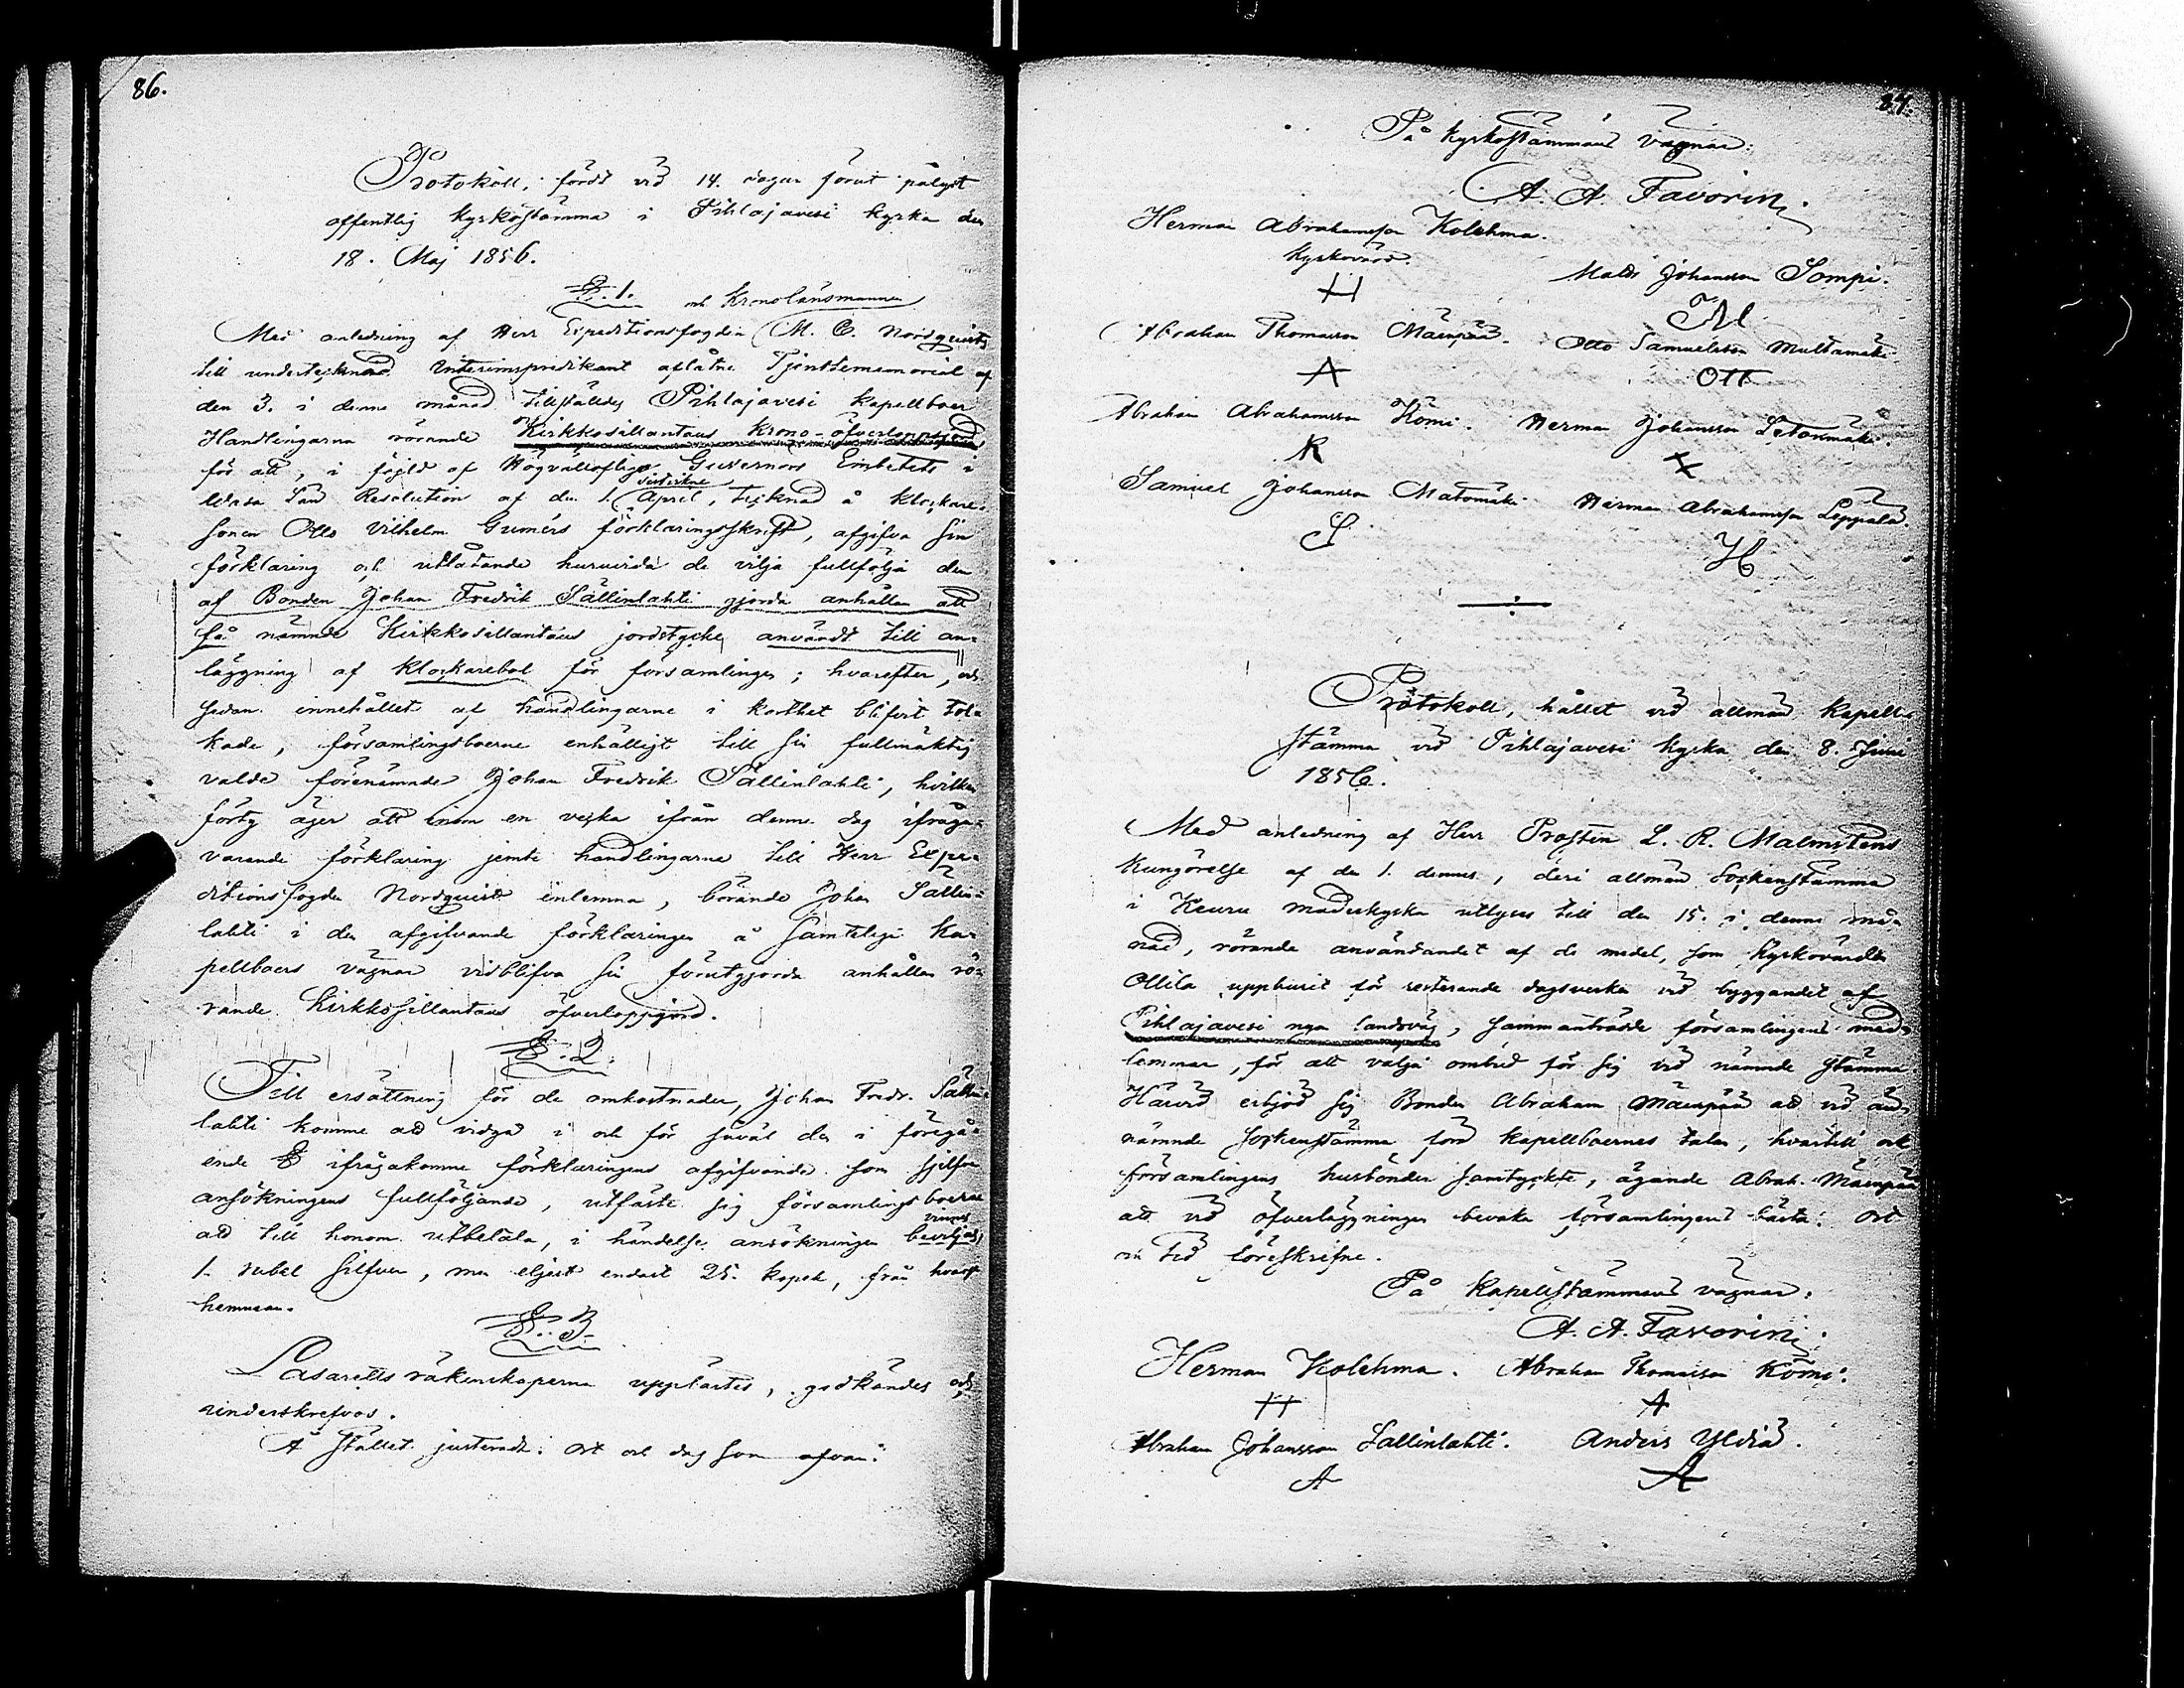 86.
Protokoll, fördt vid 14. dagar förut pålyst
offentlig kyrkostämma i Pihlajavesi kyrka den
18. Maj 1856.
§. 1.
och Kronolänsmannen
Med anledning af Herr Expeditionsfogden M. C. Nordquists
till undertecknad Interimspredikant aflåtne Tjenstememorial af
den 3. i denne månad tillställdes Pihlajavesi kapellboer
Handlingarna rörande Kirkkosillantaus krono-öfverloppsjord
för att, i följd af Högvälloflige Guvernörs Embetets i
sistvikne
länets Resolution af den 1. April, tecknad å klockare-
sonen Otto Vilhelm Gumérs förklaringsskrift, afgifva sin
förklaring och utlåtande huruvida de vilja fullfölja den
af Bonden Johan Fredrik Sällinlahti gjorda anhållan att
få nämnde Kirkkosillantaus jordstycke användt till an-
läggning af klockarebol för församlingen; hvarefter, och
sedan innehållet af handlingarne i korthet blifvit tol-
kade, församlingsboerne enhälligt till sin fullmäktig
valde förenämnde Johan Fredrik Sällinlahti, hvilken
förty äger att inom en vecka ifrån denne dag ifråga-
varande förklaring jemte handlingarne till Herr Expe-
ditionsfogden Nordquist inlemna, börande Johan Sällin-
lahti i den afgifvande förklaringen å samteliga ka-
pellboers vägnar vidblifva sin förutgjorda anhållan rö-
rande Kirkkosillantaus öfverloppsjord.
§. 2.
Till ersättning för de omkostnader, Johan Fredr. Sällin-
lahti komme att vidgå i och för såväl den i föregå-
ende § ifrågakomne förklaringens afgifvande som sjelfva
ansökningens fullföljande, utfäste sig församlingsboerne
vinnes
att till honom utbetala, i händelse ansökningen beviljas,
1. rubel silfver, men eljest endast 25. kopek, från hvarje
hemman.
§. 3.
Lasaretts räkenskaperna upplästes, godkändes och
underskrefvos.
På stället justeradt: ort och dag som ofvan:
87.
På kyrkostämmans vägnar:
A. A. Favorin.
Herman Abrahamsson Kolehma.
kyrkovärd.
H
Matts Johansson Sompi.
M
Abraham Thomasson Mäenpää.
A
Otto Samuelsson Multamäki
Ott
Abraham Abrahamsson Kömi.
K
Herman Johansson Letonmäki.
X
Samuel Johansson Matomäki
S
Herman Abrahamsson Leppälä.
H
Protokoll, hållet vid allmän kapell-
stämma vid Pihlajavesi kyrka den 8. Juni
1856.
Med anledning af Herr Prosten L. R. Malmstens
Kungörelse af den 1. dennes, deri allmän Sockenstämma
i Keuru moderkyrka utlyses till den 15. i denne må-
nad, rörande användandet af de medel, som Kyrkovärden
Ollila uppburit för resterande dagsverken vid byggandet af
Pihlajavesi nya landsväg, sammanträdde församlingens med-
lemmar, för att välja ombud för sig vid nämnde stämma.
Härvid erbjöd sig Bonden Abraham Mäenpää att vid
nämnde Sockenstämma föra kapellboernes talan, hvartill ock
församlingens husbönder samtyckte, ägande Abrah. Mäenpää
att vid öfverläggningen bevaka församlingens bästa: Ort
och tid föreskrifne.
På kapellstämmans vägnar:
A. A. Favorin.
Herman Kolehma.
H
Abraham Thomasson Kömi.
A
Abraham Johansson Sällinlahti.
A
Anders Yldiä.
A